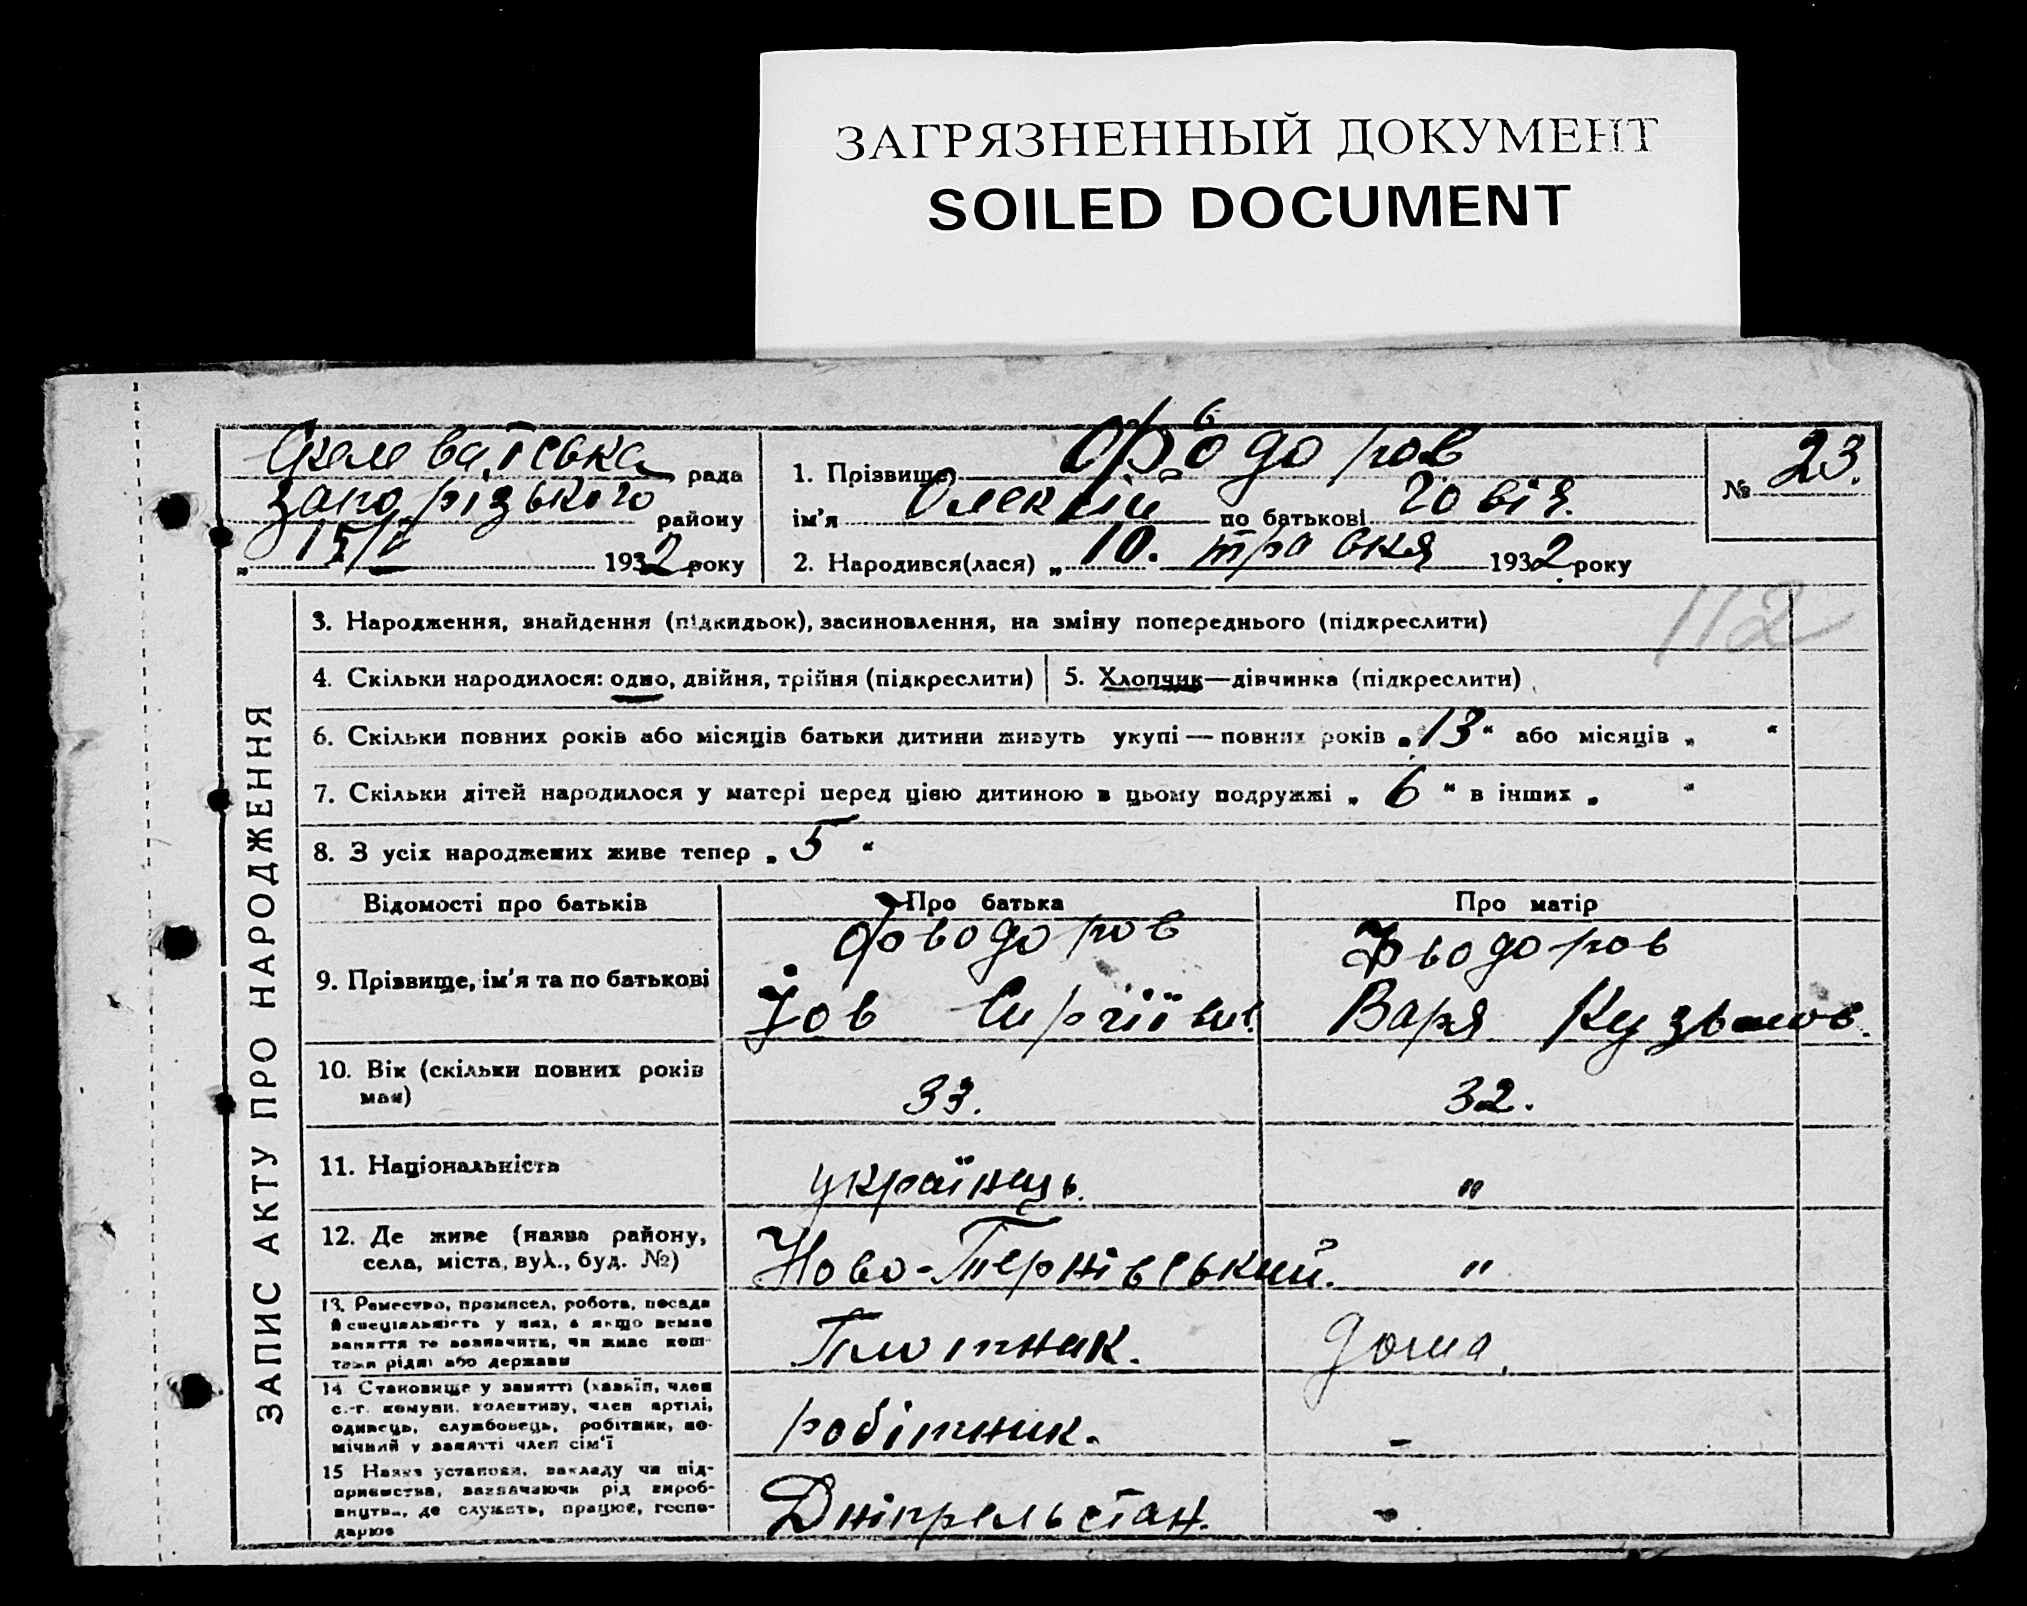 ЗАГРЯЗНЕННЫЙ ДОКУМЕНТ
SOILED DOCUMENT
рада
Запорізького району
„15/V 1932 року
1. Прізвище Фьодоров
ім'я Олексій по батькові Йовів.
2. Народився(лася) „10. травня 1932 року
№ 23.
112
ЗАПИС АКТУ ПРО НАРОДЖЕННЯ
3. Народження, знайдення (підкидьок), засиновлення, на зміну попереднього (підкреслити)
4. Скільки народилося: одно, двійня, трійня (підкреслити)
5. Хлопчик—дівчинка (підкреслити)
6. Скільки повних років або місяців батьки дитини живуть укупі — повних років „13“ або місяців „ “
7. Скільки дітей народилося у матері перед цією дитиною в цьому подружжі „6“ в інших „ “
8. З усіх народжених живе тепер „5“
Відомості про батьків
Про батька
Про матір
9. Прізвище, ім'я та по батькові
Фьодоров
Йов Сиргіїви.
Фьодоров
Варя Кузьмов.
10. Вік (скільки повних років
має)
33.
32.
11. Національність
українець.
"
12. Де живе (назва району,
села, міста, вул., буд. №)
Ново-Тернівський.
"
13. Ремество, промисел, робота, посада
й спеціяльність у них, а якщо немає
заняття то зазначити, чи живе кош-
тами рідні або держави
Плотник.
дома.
14. Становище у занятті (хазяїн, член
с.-г. комуни, колективу, член артілі,
одинець, службовець, робітник, по-
мічний у занятті член сім'ї
робітник.
-
15 Назва установи, закладу чи під-
приємства, зазначаючи рід вироб-
ництва, де служить, працює, госпо-
дарює
Дніпрельстан.
-